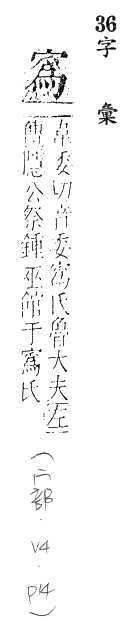 36
字彙
寪
韋委切音委寪氏魯大夫左
傳隱公祭鍾巫館于寪氏
(宀部．V4．P14)